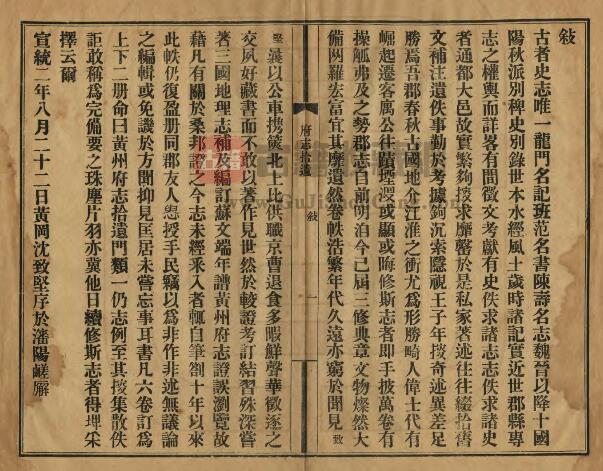 敍
古者史志唯一龍門名記班范名書陳壽名志魏晉以降十國
陽秋派別稗史別錄世本水經風土歲時諸記實近世郡縣專
志之權輿而詳畧有間徵文考獻有史佚求諸志志佚求諸史
者通都大邑故實繁夠按求靡罄於是私家著述往往綴拾舊
文補注遺佚事勤於考據鉤沉索隱視王子年按奇述異差足
勝焉吾郡春秋古國地介江淮之衝尤爲形勝畸人偉士代有
崛起遷客厲公往蹟湮沒或顯或晦修斯志者卽手披萬卷有
操觚弗及之勢郡志自前明洎今已屆三修典章文物燦然大
備网羅宏富宜其靡遺然卷帙浩繁年代久遠亦窮於聞見致
堅曩以公車携篋北上比供職京曹退食多暇鮮聲華徵逐之
交夙好藏書而不敢以著作見世然於較證考訂結習殊深嘗
著三國地理志補及編訂蘇文端年譜黃州府志證誤瀏覽故
藉凡有關於桑邦證之今志未經釆入者輒自筆劄十年以來
此帙仍復盈册同郡友人慫授手民竊以爲非作非述無議論
之編輯或免譏於方聞抑見匡居未嘗忘事耳書凡六卷訂爲
上下二册命曰黃州府志拾遺門類一仍志例至其按集散佚
詎敢稱爲完備要之珠塵片羽亦冀他日續修斯志者得埋釆
擇云爾
宣統二年八月二十二日黃岡沈致堅序於瀋陽嵯廨
府志拾遺
敍
一